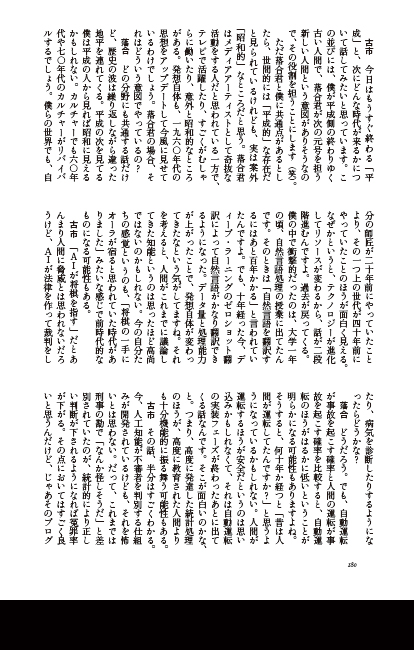 古市　今日はもうすぐ終わる「平
成」と、次にどんな時代が来るかにつ
いて話してみたいと思っています。こ
の並びには、僕が平成側の終わりゆく
古い人間で、落合君が次の元号を担う
新しい人間という意図がありそうなの
で、その役割を担うことにします（笑）。
ただ落合君と僕に共通点があるとし
たら、世間的には「平成的」な存在だ
と見られているけれども、実は案外
「昭和的」なところだと思う。落合君
はメディアアーティストとして奇抜な
活動をする人だと思われている一方で、
テレビで活躍したり、すごくがむしゃ
らに働いたり、意外と昭和的なところ
がある。発想自体も、一九六〇年代の
思想をアップデートして今風に見せて
いるわけでしょう。落合君の場合、そ
れはどういう意図でやっているの？
落合　どの分野にも共通する話だけ
ど、歴史の波は繰り返しながら違った
地平を連れてくる。平成の次を見てる
僕は平成の人から見れば昭和に見える
かもしれない。カルチャーでも六〇年
代や七〇年代のカルチャーがリバイバ
ルするでしょう。僕らの世界でも、自
分の師匠が二十年前にやっていたこと
より、その一つ上の世代が四十年前に
やっていたことのほうが面白く見える。
なぜかというと、テクノロジーが進化
してリソースが変わるから、話が二段
階進むんですよ。過去が戻ってくる。
僕の中で衝撃的だったのは、大学一年
の頃、自然言語処理の授業に出たん
です。そのときは「自然言語を翻訳す
るにはあと百年かかる」と言われてい
たんですよ。でも、十年経った今、デ
ィープ・ラーニングのゼロショット翻
訳によって自然言語がかなり翻訳でき
るようになった。データ量と処理能力
が上がったことで、発想自体が変わっ
てきたなという気がしてますね。それ
を考えると、人間がこれまでに議論し
てきた知能というのは思ったほど高尚
ではないのかもしれない。今の自分た
ちの感覚というのも、「将棋の一手に
オーラが宿ると思われていた時代があ
りました」みたいな感じで前時代的な
ものになる可能性もある。
古市　「ＡＩが将棋を指す」だとあ
んまり人間に脅威とは思われないだろ
うけど、ＡＩが法律を作って裁判をし
たり、病気を診断したりするようにな
ったらどうかな？
落合　どうだろう。でも、自動運転
が事故を起こす確率と人間の運転が事
故を起こす確率を比較すると、自動運
転のほうがはるかに低いということが
明らかになる可能性もありますよね。
そうすると、何十年か経つと「昔は人
間が運転してたんですか？」と思うよ
うになっているかもしれない。人間が
運転するほうが安全だというのは思い
込みかもしれなくて、それは自動運転
の実装フェーズが終わったあとに出て
くる話なんです。そこが面白いのかな、
と。つまり、高度に発達した統計処理
のほうが、高度に教育された人間より
も十分機能的に振る舞う可能性もある。
古市　その話、半分はすごくわかる。
今、人工知能が不審者を判別する仕組
みが開発されているけども、それを怖
いとは思わない。だって、これまでは
刑事の勘で「なんか怪しそうだ」と差
別されていたのが、統計的により正し
い判断が下されるようになれば冤罪率
が下がる。その点においてはすごく良
いと思うんだけど、じゃあそのプログ
180